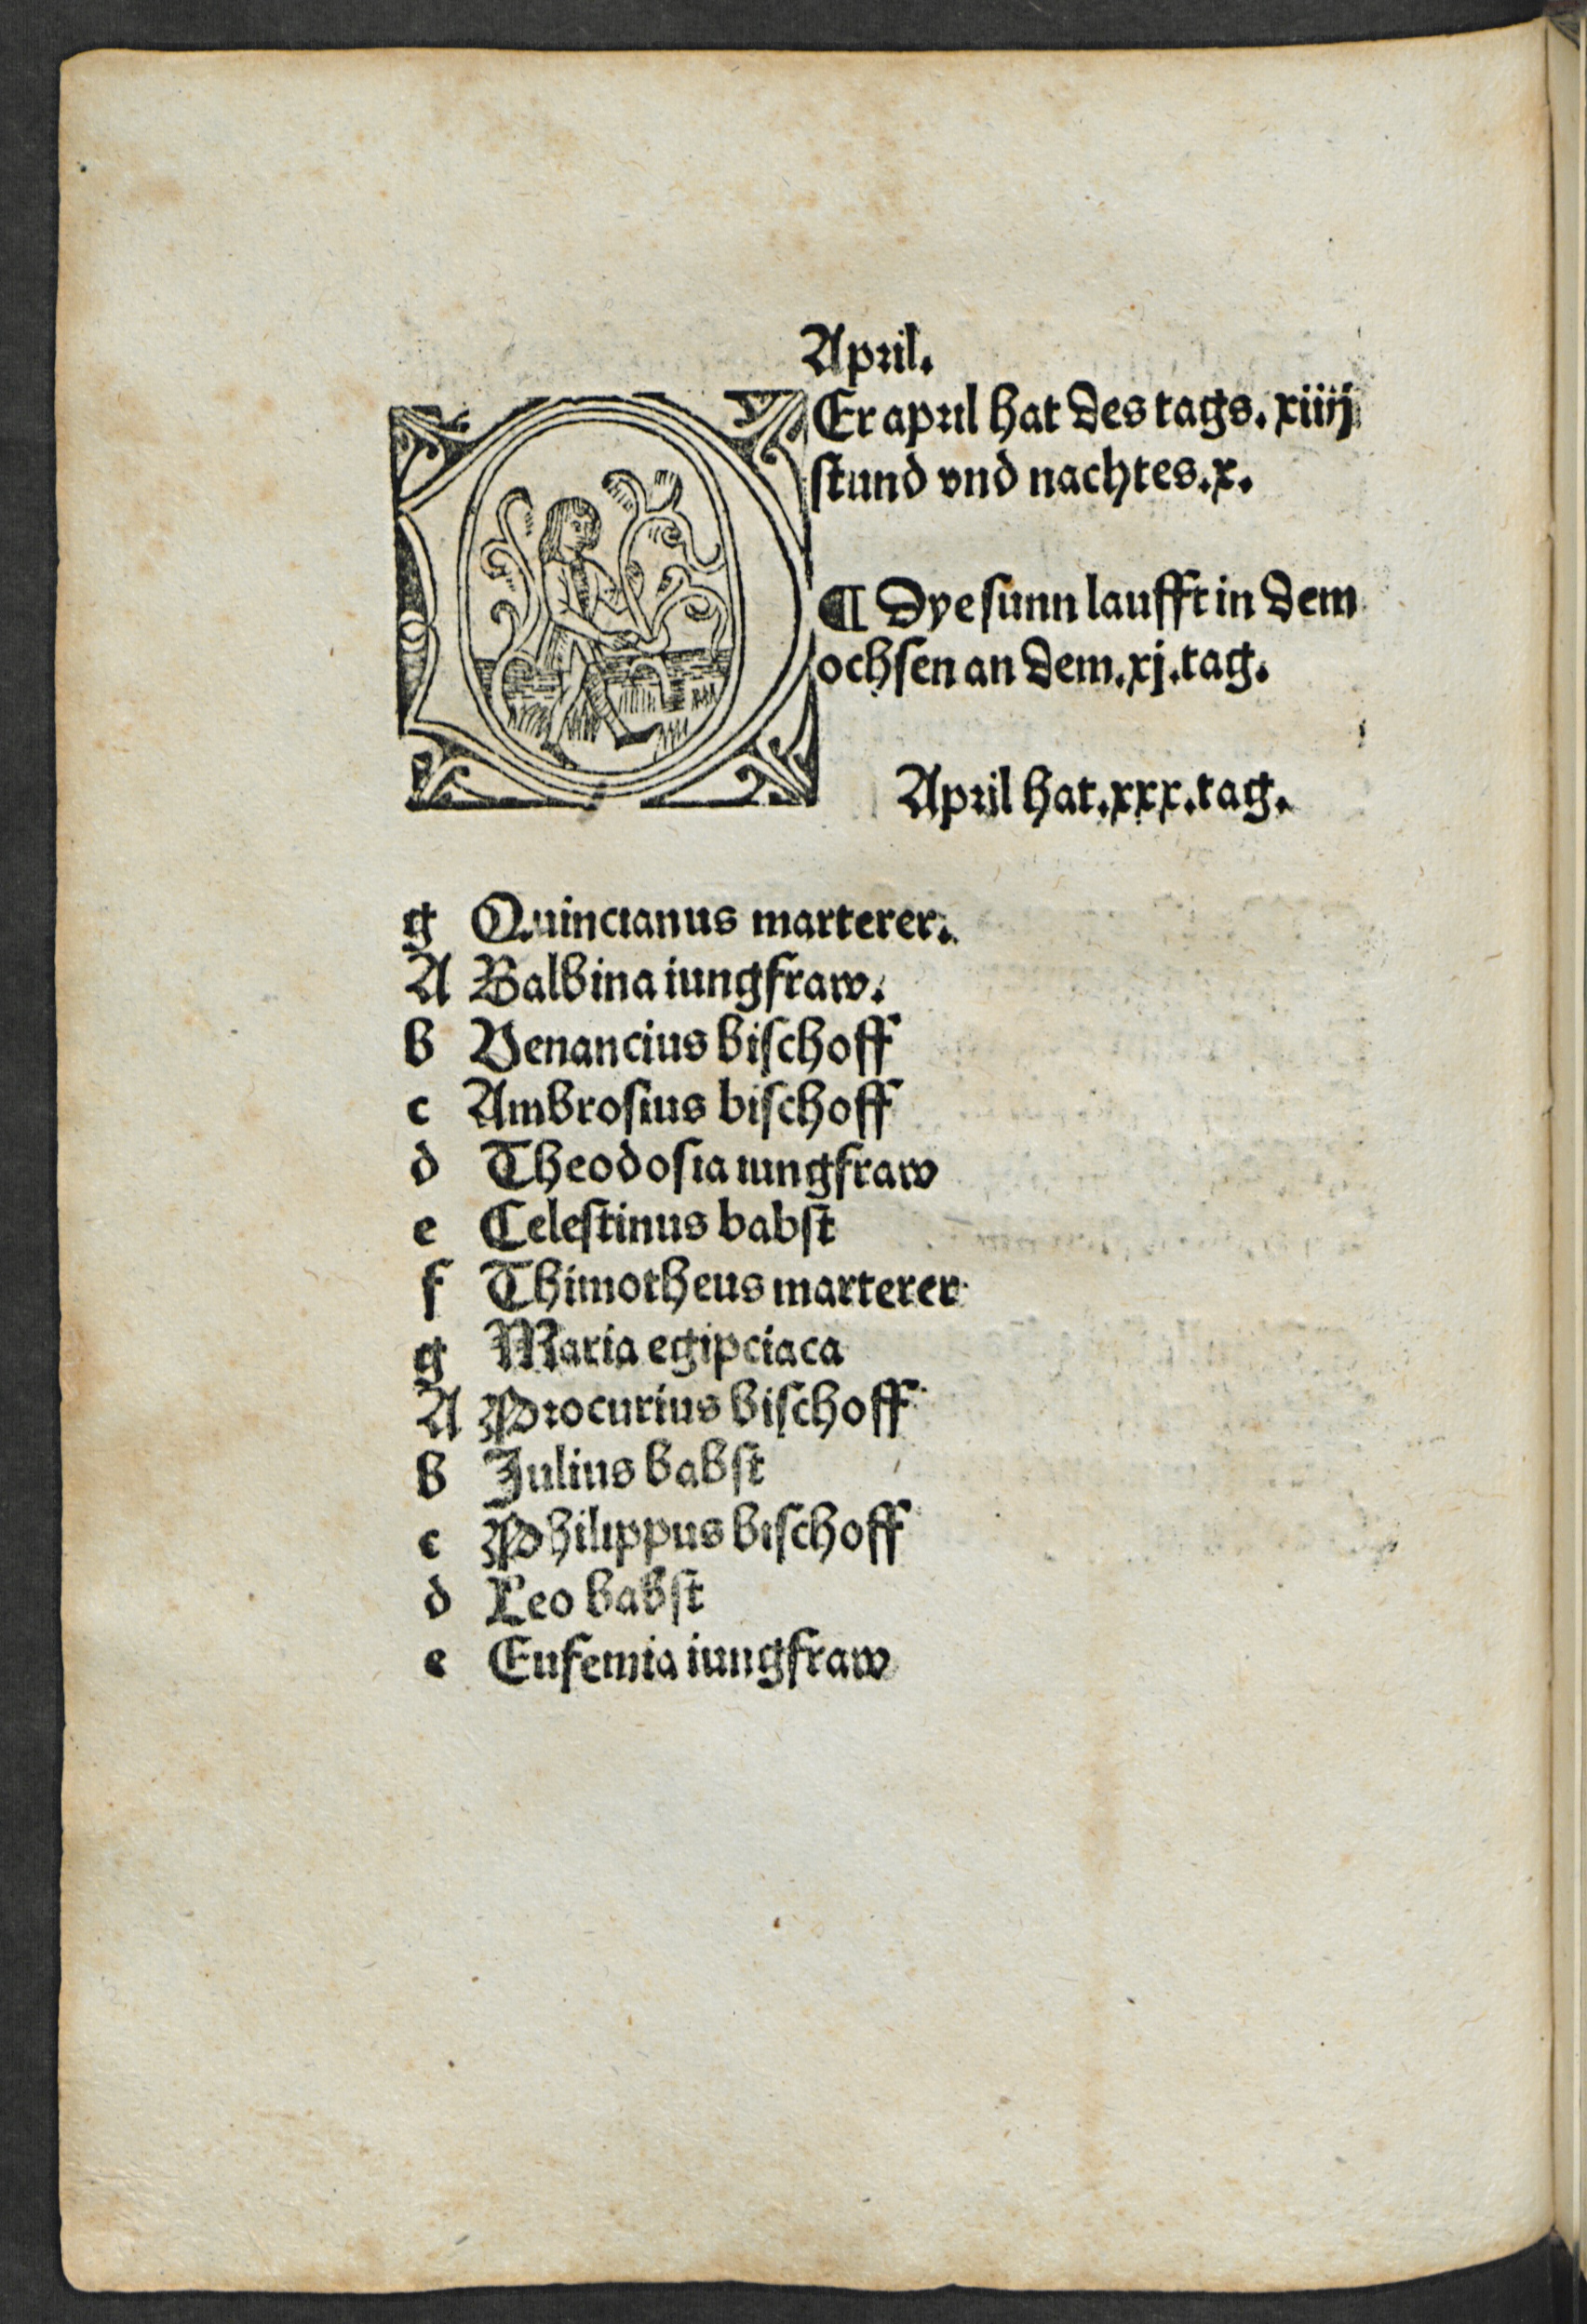 April.
DEr april hat des tags. xiiij
ſtund vnd nachtes.x.
¶ Dye ſunn laufft in dem
ochſen an dem.xj.tag.
April hat.xxx.tag.
g Quincianus marterer.
A Balbina iungfraw.
b Venancius biſchoff
c Ambroſius biſchoff
d Theodoſia iungfraw
e Celeſtinus babſt
f Thimotheus marterer
g Maria egipciaca
A Procurius biſchoff
b Julius babſt
c Philippus biſchoff
d Leo babſt
e Eufemia iungfraw